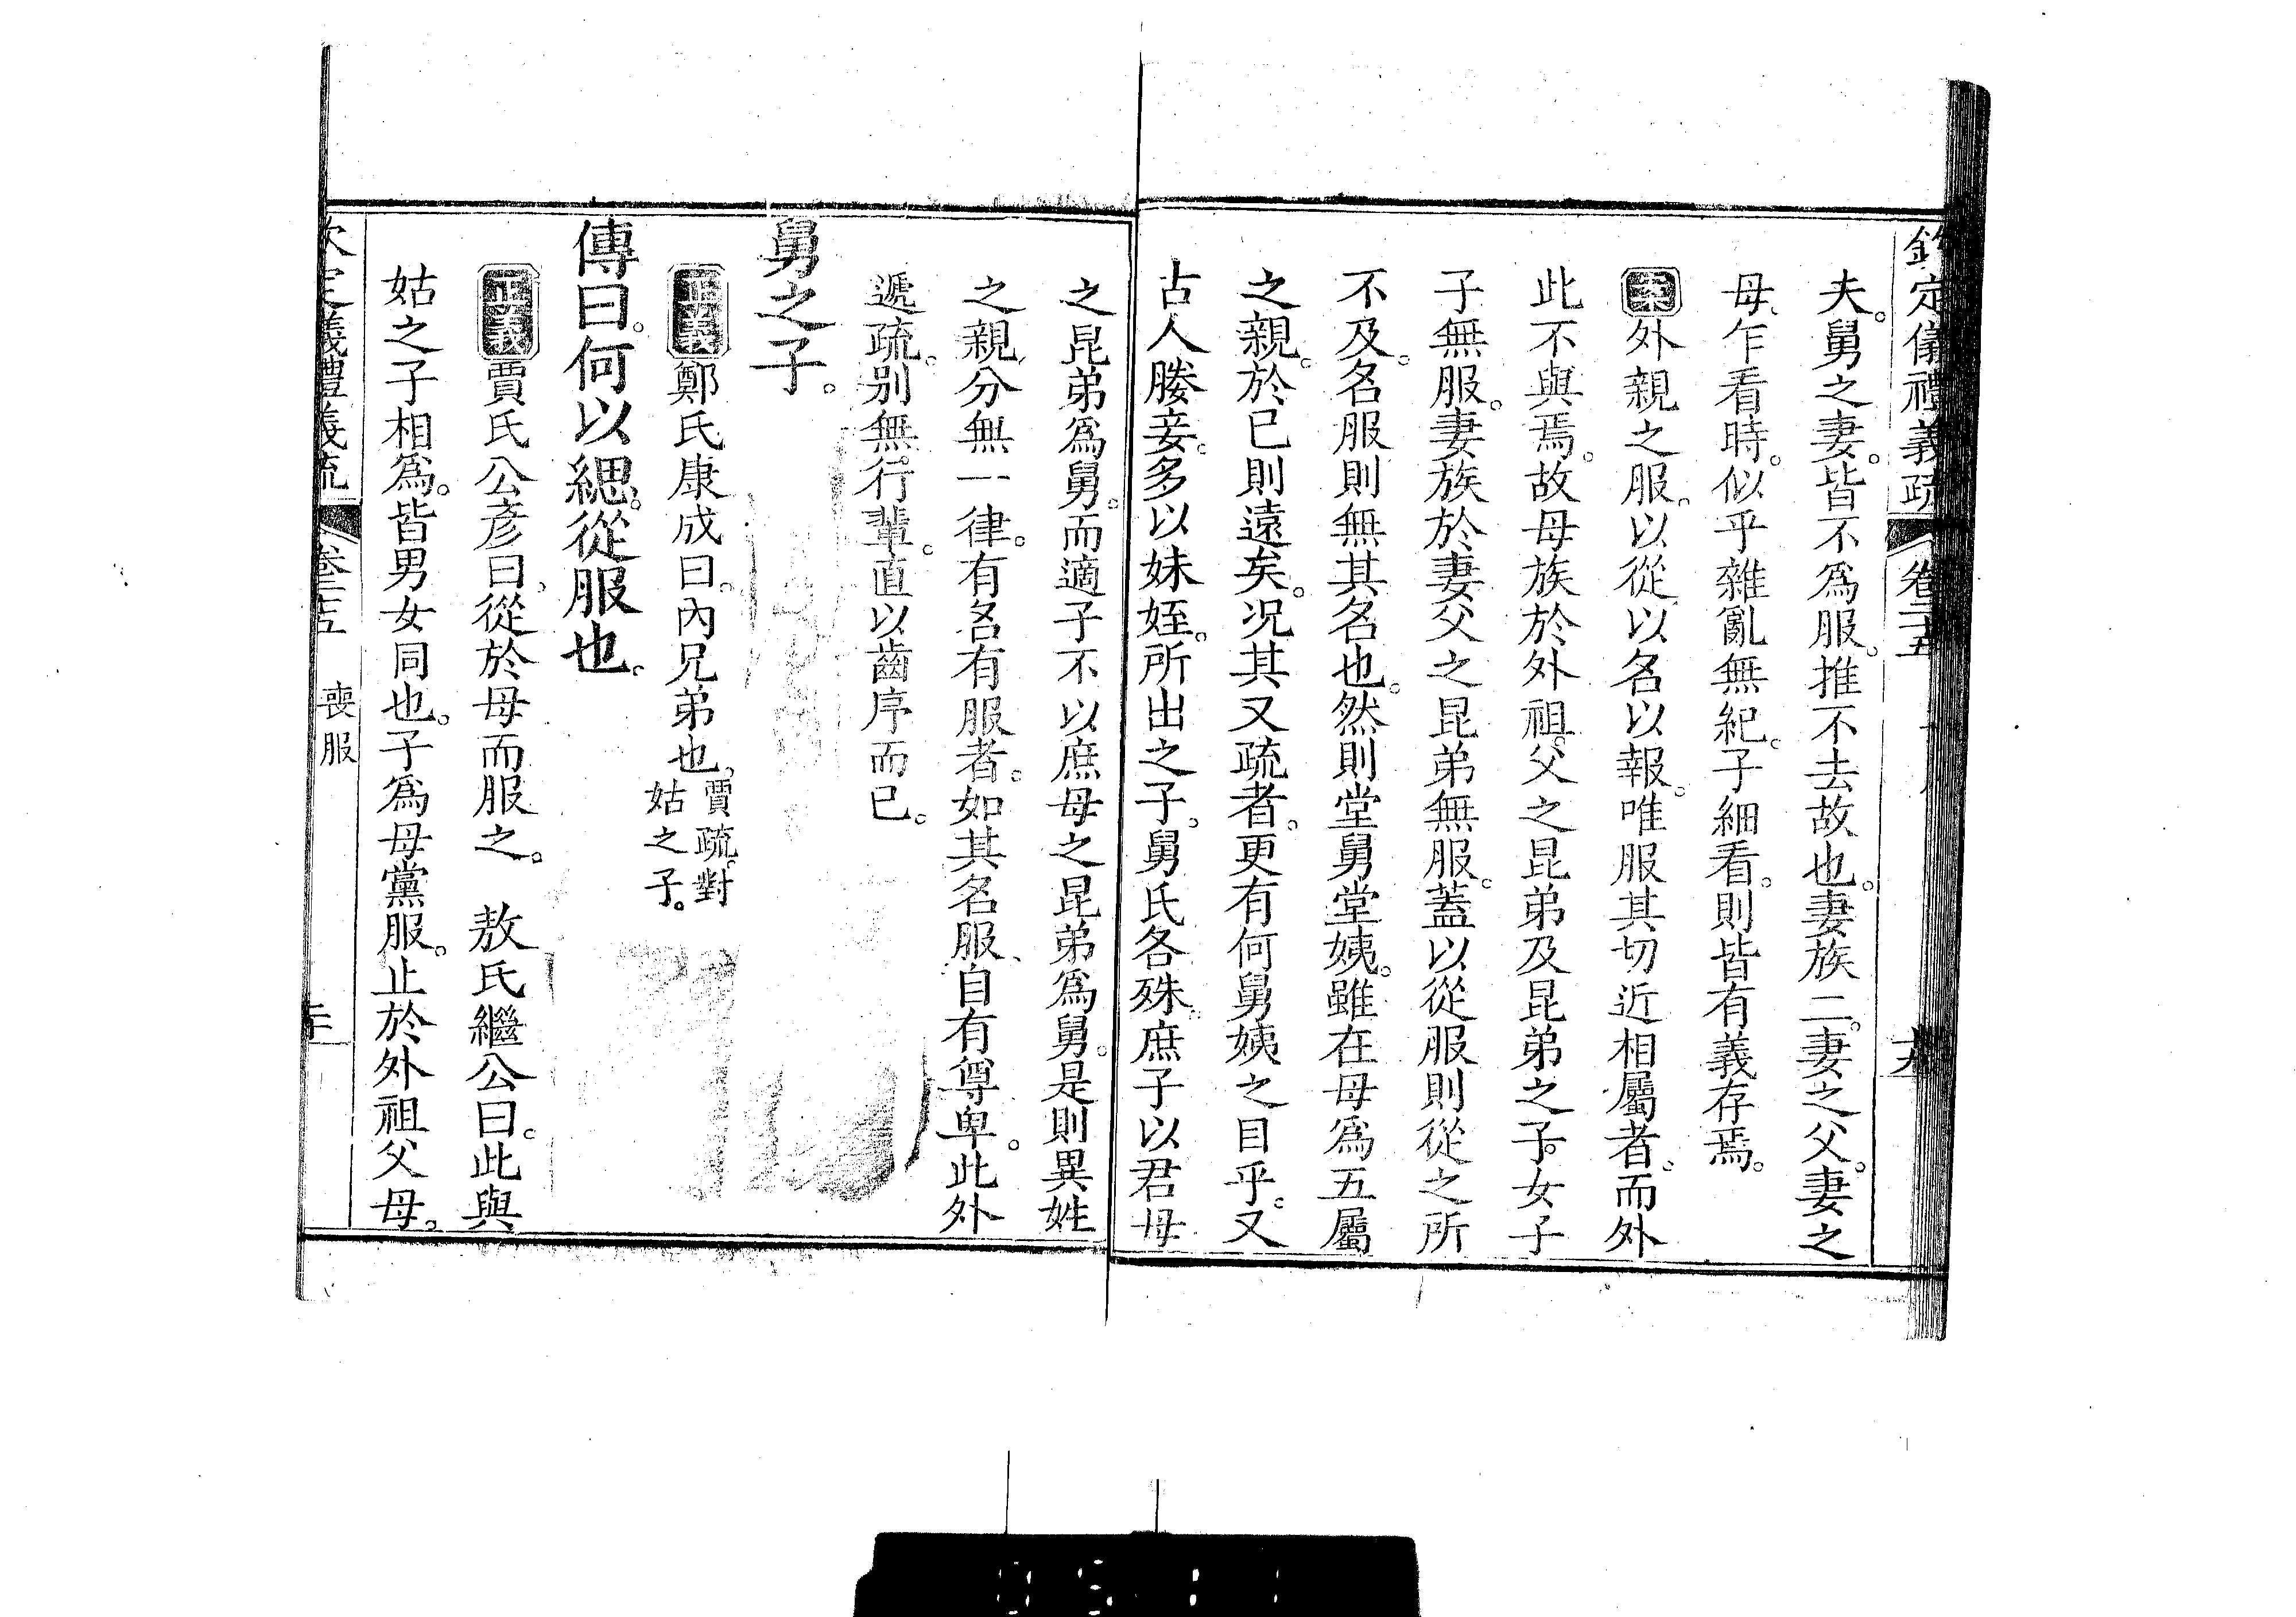 欽定儀禮義疏 卷二十五
夫。舅之妻。皆不爲服。推不去故也。妻族二。妻之父。妻之
母。乍看時。似乎雜亂無紀。子細看。則皆有義存焉。
案外親之服。以從以名以報。唯服其切近相屬者。而外
此不與焉。故母族於外祖父之昆弟及昆弟之子。女子
子無服。妻族於妻父之昆弟無服。蓋以從服則從之所
不及。名服則無其名也。然則堂舅堂姨。雖在母爲五屬
之親。於已則遠矣。況其又疏者。更有何舅姨之目乎。又
古人媵妾。多以妹姪。所出之子。舅氏各殊。庶子以君母
之昆弟爲舅。而適子不以庶母之昆弟爲舅。是則異姓
之親。分無一律。有名有服者。如其名服。自有尊卑。此外
遞疏。別無行輩。直以齒序而已。
舅之子。
正義鄭氏康成曰。內兄弟也。賈疏。對姑之子。
傳曰。何以緦。從服也。
正義賈氏公彥曰。從於母而服之。 敖氏繼公曰。此與
姑之子相爲。皆男女同也。子爲母黨服。止於外祖父母。
欽定義禮義疏 卷二十五 喪服